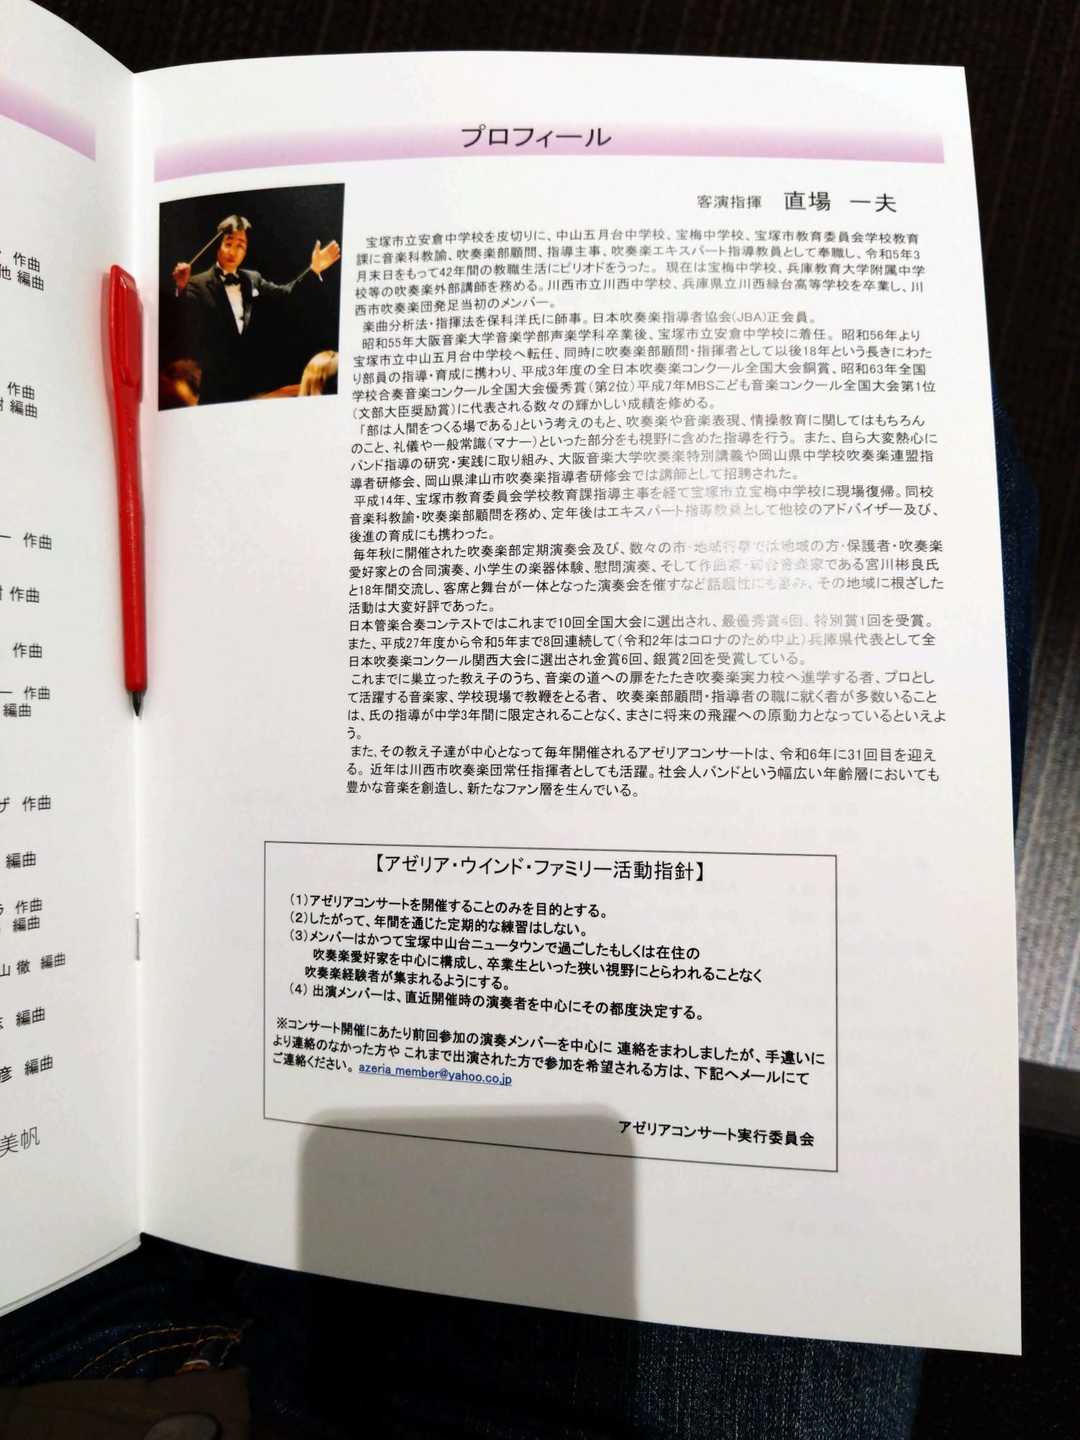 作曲
他 編曲
作曲
編曲
ー 作曲
作曲
作曲
ー 作曲
編曲
ザ 作曲
編曲
ラ 作曲
編曲
山 徹 編曲
編曲
彦 編曲
美帆
プロフィール
客演指揮 直場 一夫
宝塚市立安倉中学校を皮切りに、中山五月台中学校、宝梅中学校、宝塚市教育委員会学校教育
課に音楽科教諭、吹奏楽部顧問、指導主事、吹奏楽エキスパート指導教員として奉職し、令和5年3
月末日をもって42年間の教職生活にピリオドをうった。 現在は宝梅中学校、兵庫教育大学附属中学
校等の吹奏楽外部講師を務める。川西市立川西中学校、兵庫県立川西緑台高等学校を卒業し、川
西市吹奏楽団発足当初のメンバー。
楽曲分析法・指揮法を保科洋氏に師事。日本吹奏楽指導者協会(JBA)正会員。
昭和55年大阪音楽大学音楽学部声楽学科卒業後、宝塚市立安倉中学校に着任。 昭和56年より
宝塚市立中山五月台中学校へ転任、同時に吹奏楽部顧問・指揮者として以後18年という長きにわた
り部員の指導・育成に携わり、平成3年度の全日本吹奏楽コンクール全国大会銅賞、昭和63年全国
学校合奏音楽コンクール全国大会優秀賞(第2位)平成7年MBSこども音楽コンクール全国大会第1位
(文部大臣奨励賞)に代表される数々の輝かしい成績を修める。
「部は人間をつくる場である」という考えのもと、吹奏楽や音楽表現、情操教育に関してはもちろん
のこと、礼儀や一般常識(マナー)といった部分をも視野に含めた指導を行う。 また、自ら大変熱心に
バンド指導の研究・実践に取り組み、大阪音楽大学吹奏楽特別講義や岡山県中学校吹奏楽連盟指
導者研修会、岡山県津山市吹奏楽指導者研修会では講師として招聘された。
平成14年、宝塚市教育委員会学校教育課指導主事を経て宝塚市立宝梅中学校に現場復帰。同校
音楽科教諭・吹奏楽部顧問を務め、定年後はエキスパート指導教員として他校のアドバイザー及び、
後進の育成にも携わった。
毎年秋に開催された吹奏楽部定期演奏会及び、数々の市・地域行事では地域の方・保護者・吹奏楽
愛好家との合同演奏、小学生の楽器体験、慰問演奏、そして作曲家・舞台音楽家である宮川彬良氏
と18年間交流し、客席と舞台が一体となった演奏会を催すなど話題性にも富み、その地域に根ざした
活動は大変好評であった。
日本管楽合奏コンテストではこれまで10回全国大会に選出され、最優秀賞4回、特別賞1回を受賞。
また、平成27年度から令和5年まで8回連続して(令和2年はコロナのため中止)兵庫県代表として全
日本吹奏楽コンクール関西大会に選出され金賞6回、銀賞2回を受賞している。
これまでに巣立った教え子のうち、音楽の道への扉をたたき吹奏楽実力校へ進学する者、プロとし
て活躍する音楽家、学校現場で教鞭をとる者、 吹奏楽部顧問・指導者の職に就く者が多数いること
は、氏の指導が中学3年間に限定されることなく、まさに将来の飛躍への原動力となっているといえよ
う。
また、その教え子達が中心となって毎年開催されるアゼリアコンサートは、令和6年に31回目を迎え
る。 近年は川西市吹奏楽団常任指揮者としても活躍。社会人バンドという幅広い年齢層においても
豊かな音楽を創造し、新たなファン層を生んでいる。
【アゼリア・ウインド・ファミリー活動指針】
(1)アゼリアコンサートを開催することのみを目的とする。
(2)したがって、年間を通じた定期的な練習はしない。
(3)メンバーはかつて宝塚中山台ニュータウンで過ごしたもしくは在住の
吹奏楽愛好家を中心に構成し、卒業生といった狭い視野にとらわれることなく
吹奏楽経験者が集まれるようにする。
(4) 出演メンバーは、直近開催時の演奏者を中心にその都度決定する。
※コンサート開催にあたり前回参加の演奏メンバーを中心に 連絡をまわしましたが、手違いに
より連絡のなかった方や これまで出演された方で参加を希望される方は、下記へメールにて
ご連絡ください。 azeria_member@yahoo.co.jp
アゼリアコンサート実行委員会